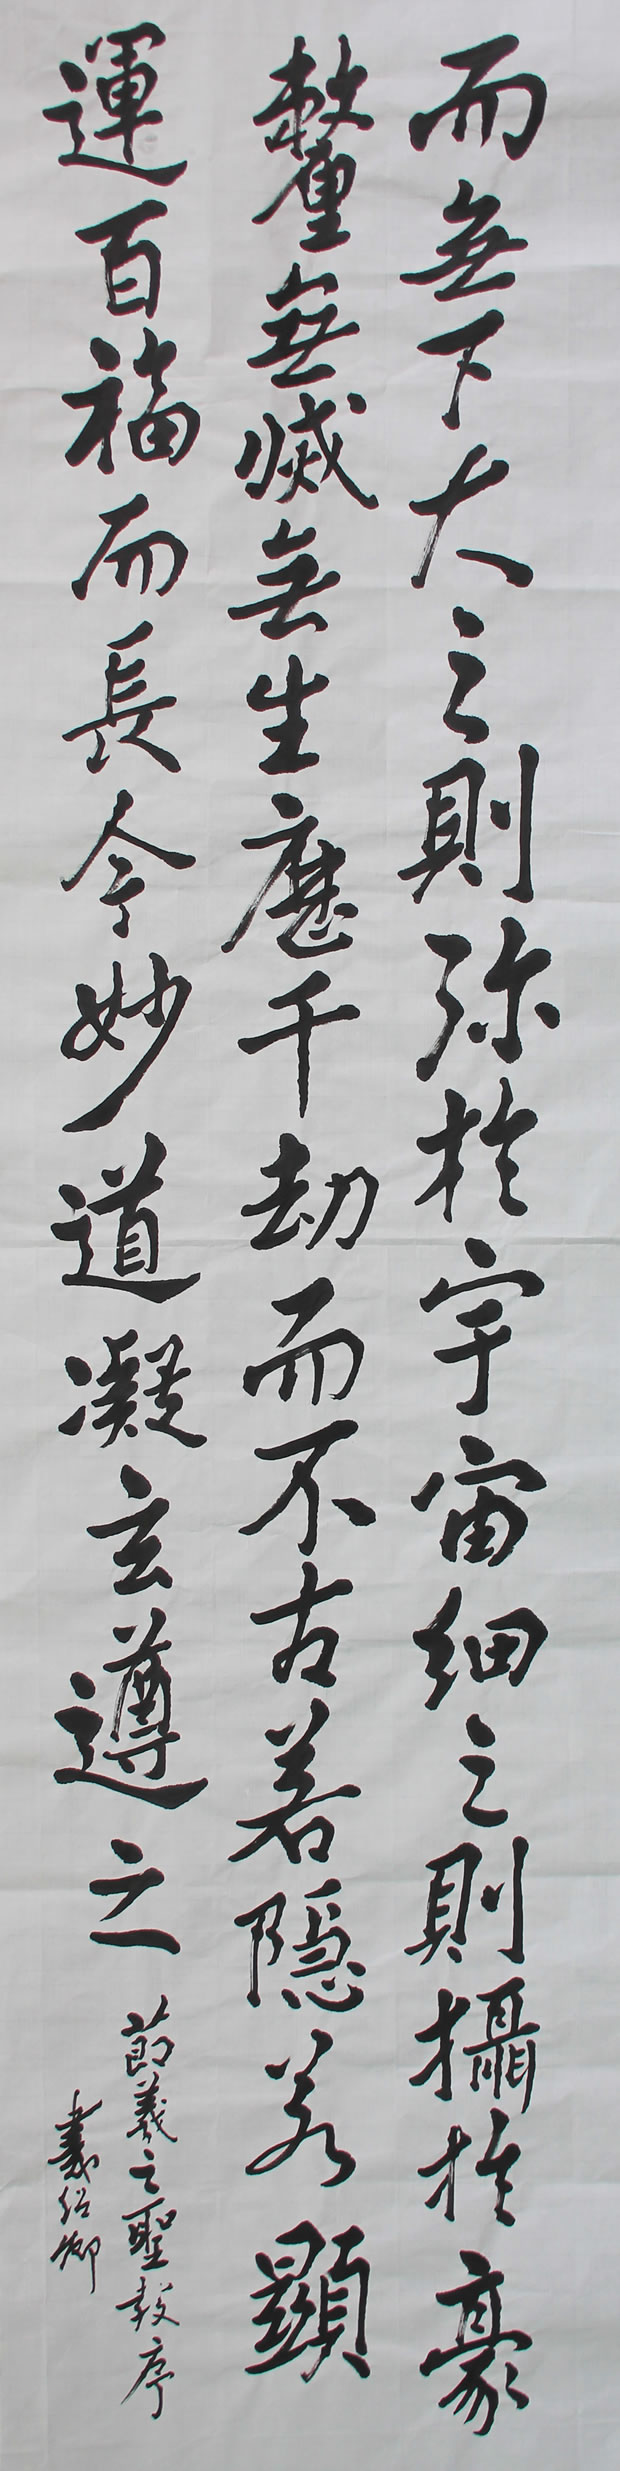 而無下大之則弥於宇宙細之則攝於豪
釐無滅無生歷千劫而不古若隱若顯
運百福而長今妙道凝玄遵之
節羲之聖教序
绍卿